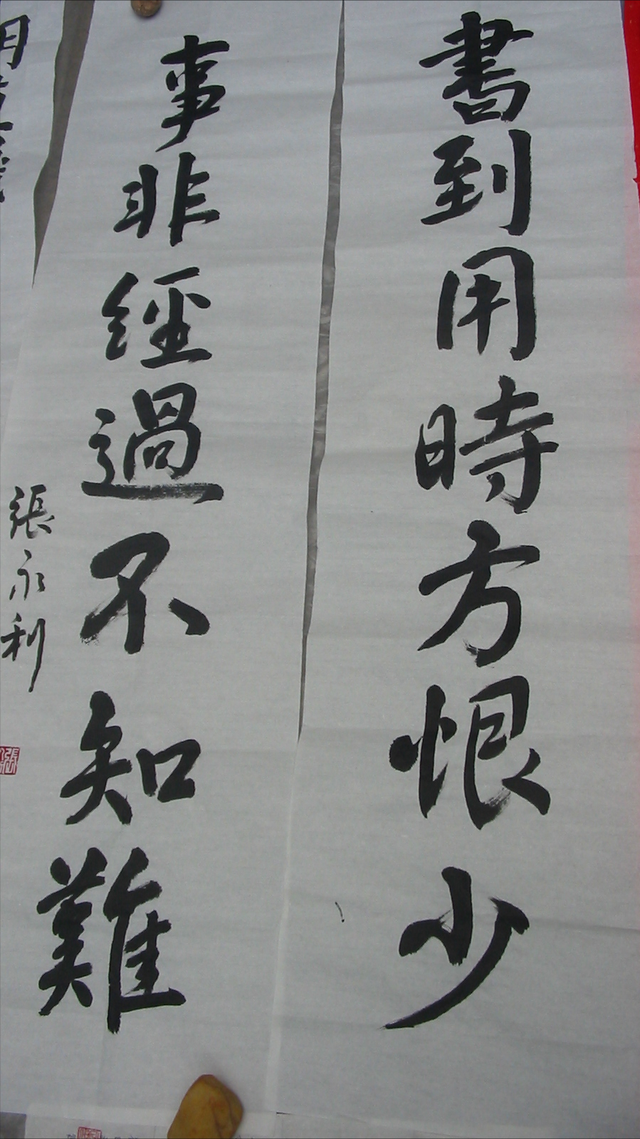 書到用時方恨少
事非經過不知難
張永利